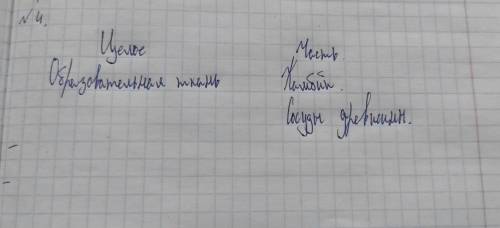 №4.
Целое Часть.
Образовательная ткань Камбий.
Сосуды древесины.